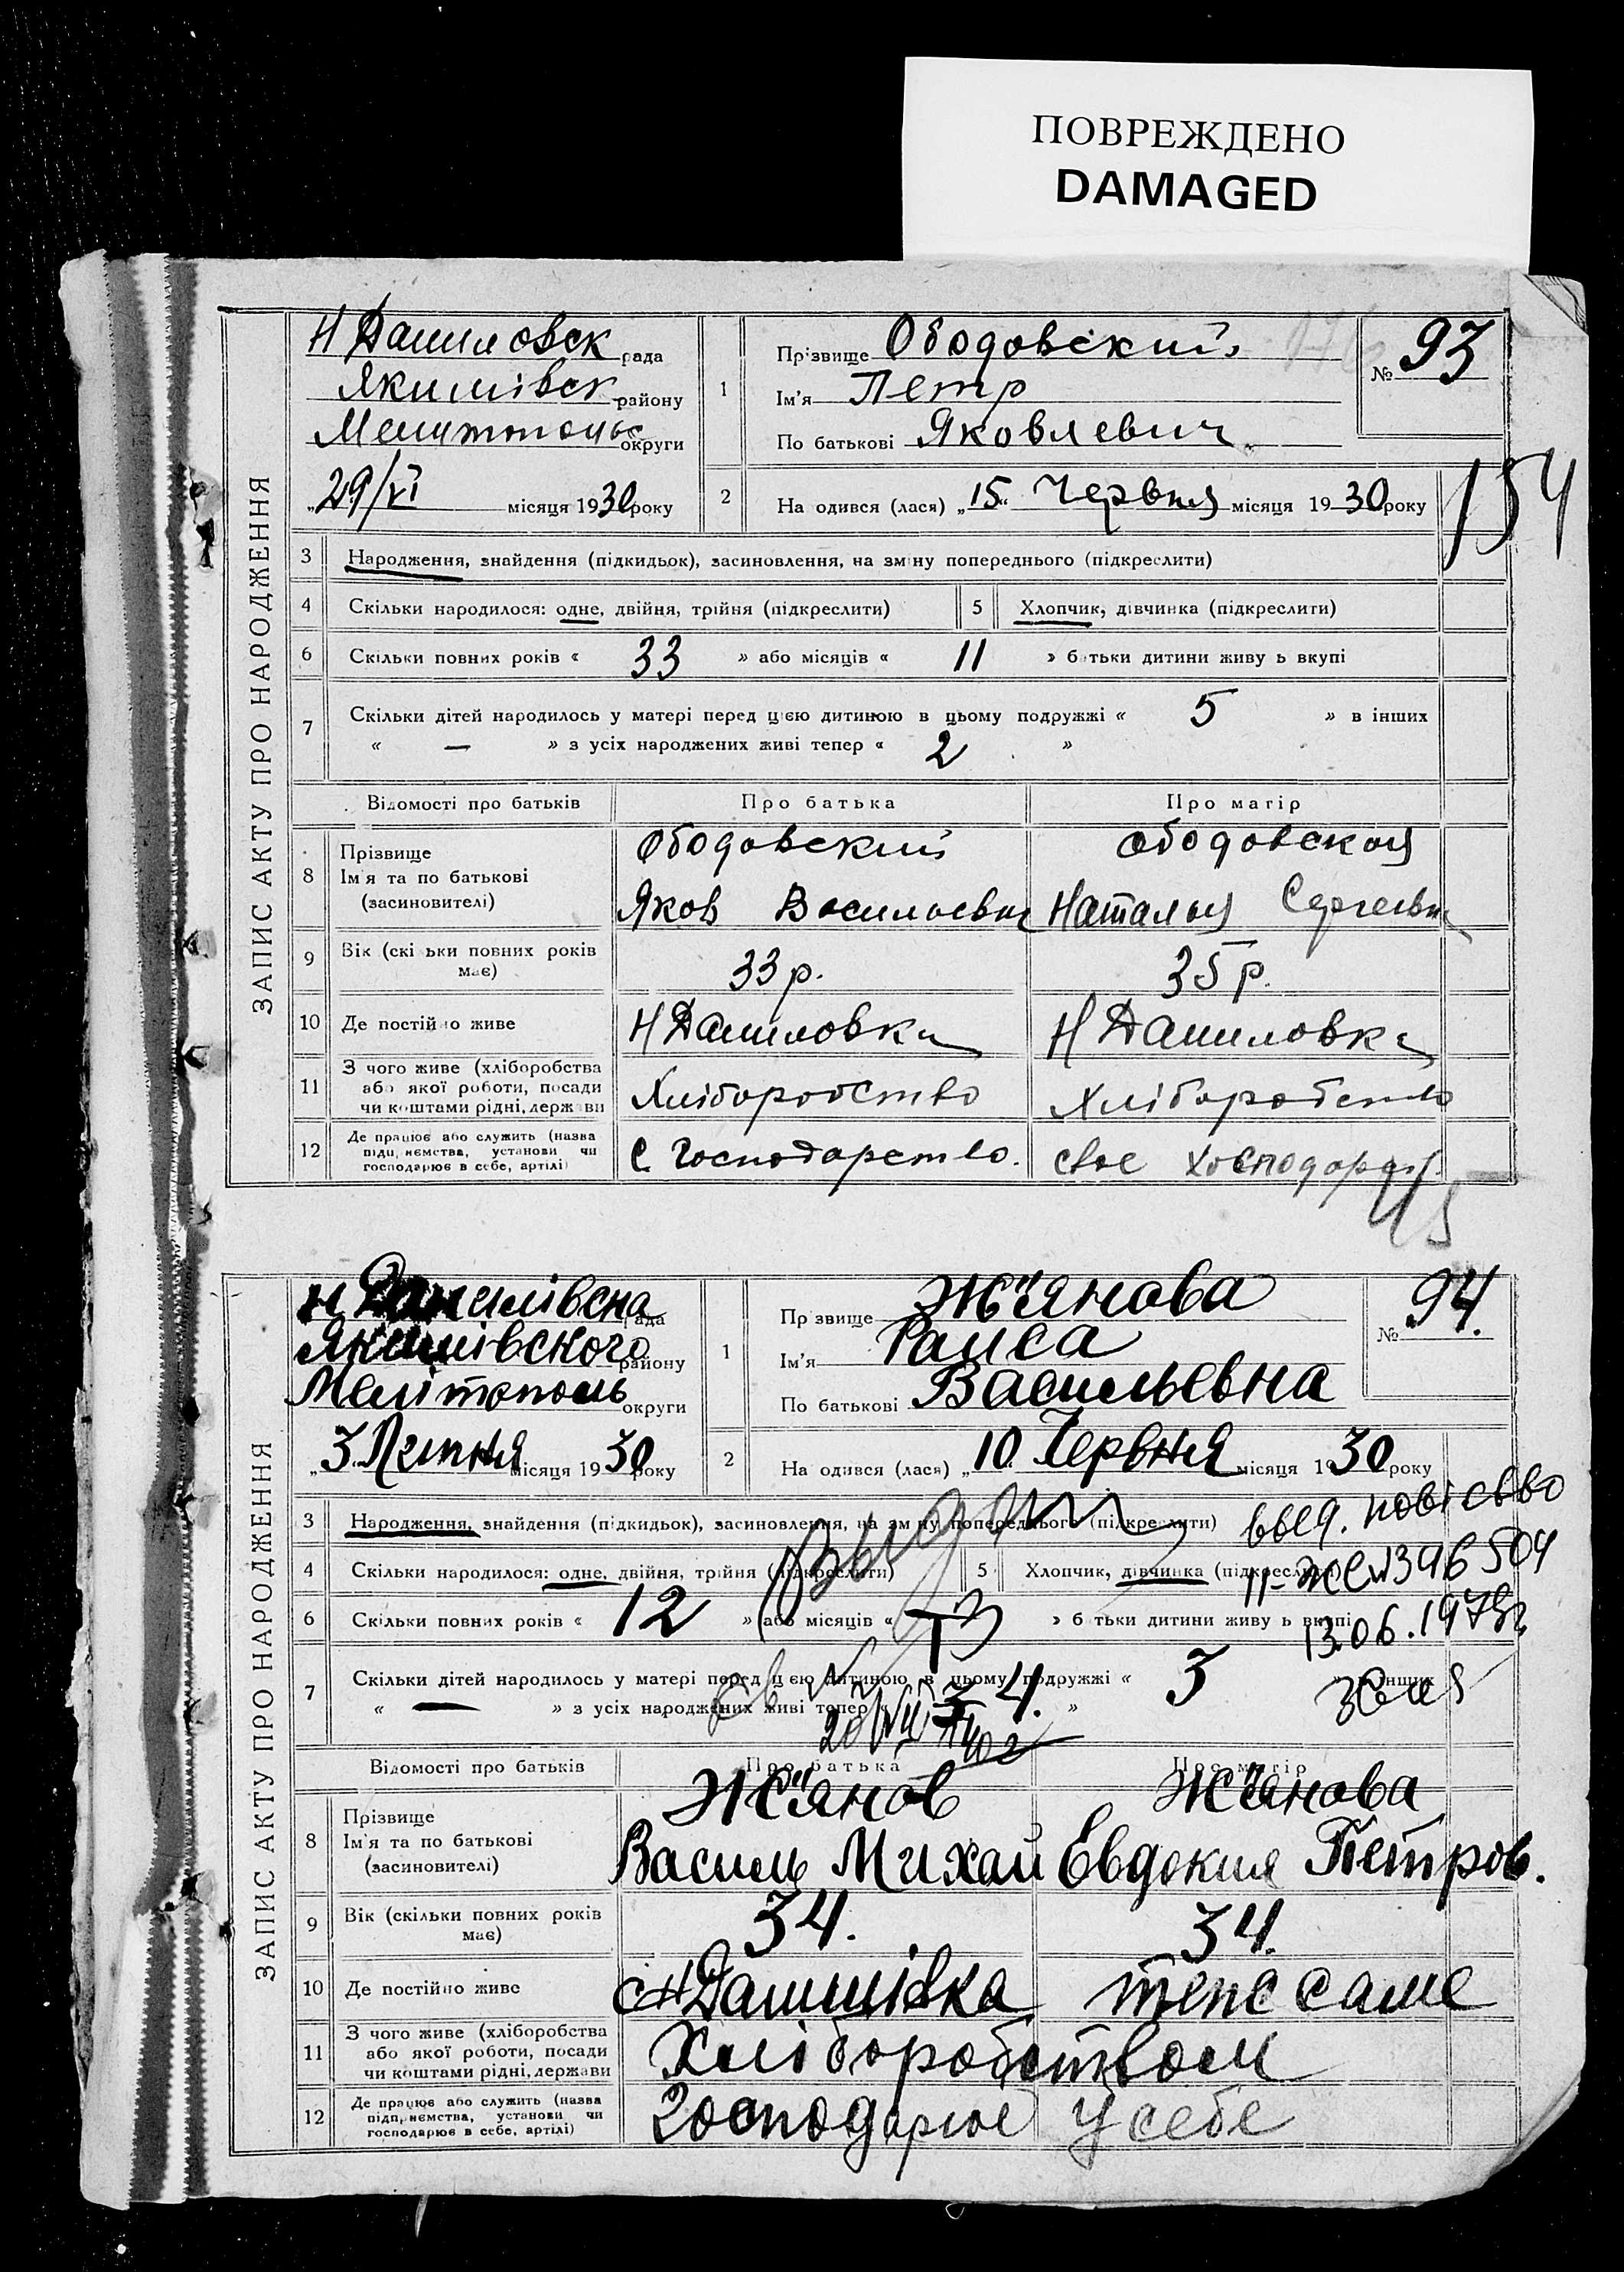 ПОВРЕЖДЕНО
DAMAGED
ЗАПИС АКТУ ПРО НАРОДЖЕННЯ
Н Даниловск рада
Якимівск району
округи
„29/VI місяця 1930 року
1
Прізвище Ободовский
Ім'я Петр
По батькові Яковлевич
№ 93
154
2
На одився (лася) „15“ Червня місяця 1930 року
3 Народження, знайдення (підкидьок), засиновлення, на зміну попереднього (підкреслити)
4 Скільки народилося: одне, двійня, трійня (підкреслити) 5 Хлопчик, дівчинка (підкреслити)
6 Скільки повних років « 33 » або місяців « 11 » батьки дитини живу ь вкупі
7 Скільки дітей народилось у матері перед цією дитиною в цьому подружжі « 5 » в інших
« — » з усіх народжених живі тепер « 2 »
Відомості про батьків Про батька Про матір
8 Прізвище
Ім'я та по батькові
(засиновителі)
Ободовский Ободовская
Яков Васильевич Наталья Сергеевн
9 Вік (скі ьки повних років має) 33 р. 35 р.
10 Де постійно живе Н Даниловка Н Даниловка
11 З чого живе (хліборобства або якої роботи, посади чи коштами рідні, держави Хліборобство Хліборобство
12 Де працює або служить (назва підприємства, установи чи господарює в себе, артілі) С Господарство. свое
ЗАПИС АКТУ ПРО НАРОДЖЕННЯ
рада
Якимівского району
Мелітополь округи
„3. Липня місяця 1930 року
1
Прізвище Жіянова
Ім'я Раиса
По батькові Васильевна
№ 94.
2
На одився (лася) „10 Червня місяця 1930 року
3 Народження, знайдення (підкидьок), засиновлення, на зміну попереднього (підкреслити)
4 Скільки народилося: одне, двійня, трійня (підкреслити) 5 Хлопчик, дівчинка (підкреслити)
396504
6 Скільки повних років « 12 » або місяців « » батьки дитини живу ь вкупі
13.06.197
7 Скільки дітей народилось у матері перед цією дитиною в цьому подружжі « 3 » в інших
« — » з усіх народжених живі тепер « 4. »
Відомості про батьків Про батька Про матір
8 Прізвище
Ім'я та по батькові
(засиновителі)
Жіянов Жіянова
Василь Михай Евдокия Петров.
9 Вік (скільки повних років має) 34. 34.
10 Де постійно живе с Н Данилівка теже саме
11 З чого живе (хліборобства або якої роботи, посади чи коштами рідні, держави Хліборобством
12 Де працює або служить (назва підприємства, установи чи господарює в себе, артілі) господарює у себе